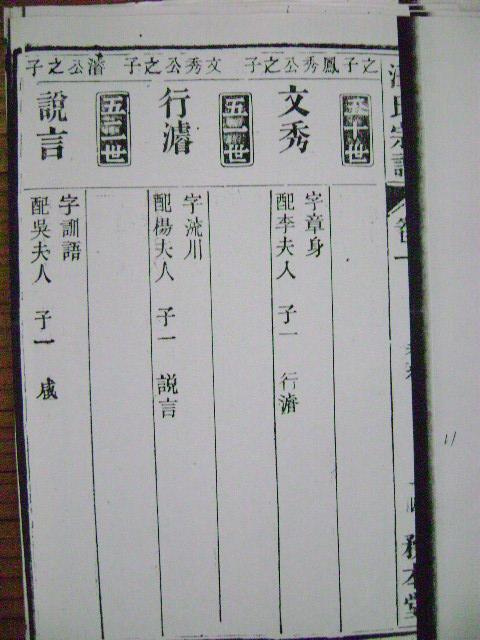 之子
鳳秀公之子
文秀公之子
濬公之子
五十世
文秀
字章身
配李夫人 子一 行濬
五一世
行濬
字流川
配楊夫人 子一 説言
五二世
說言
字訓語
配吳夫人 子一 威
氏宗譜
卷一
務本堂